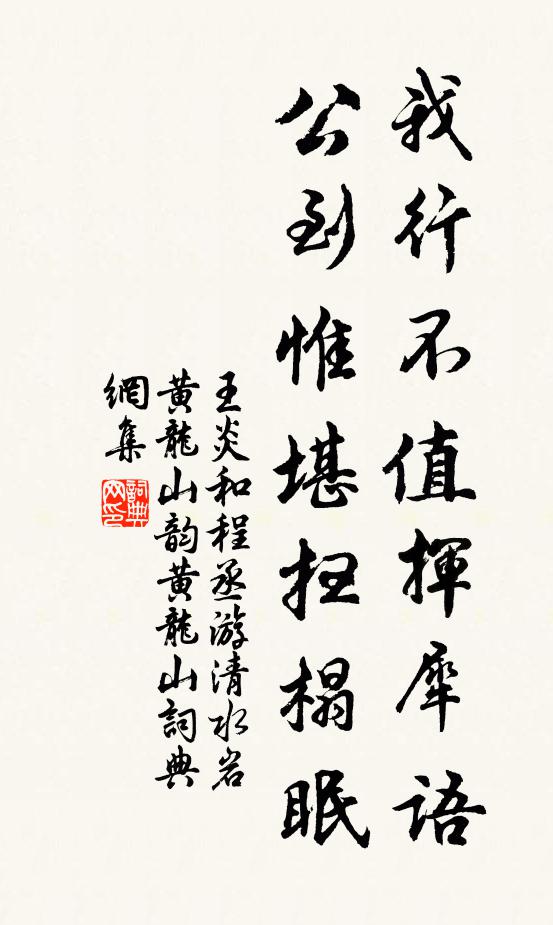 我行不值揮犀語
公到惟堪扫榻眠
王炎和程丞游清水岩
黄龍山韵黄龍山詞典
網集
詞典
网印